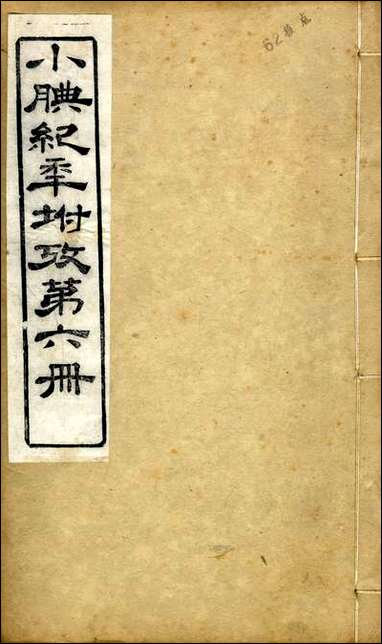 小腆紀年坿攷第六冊